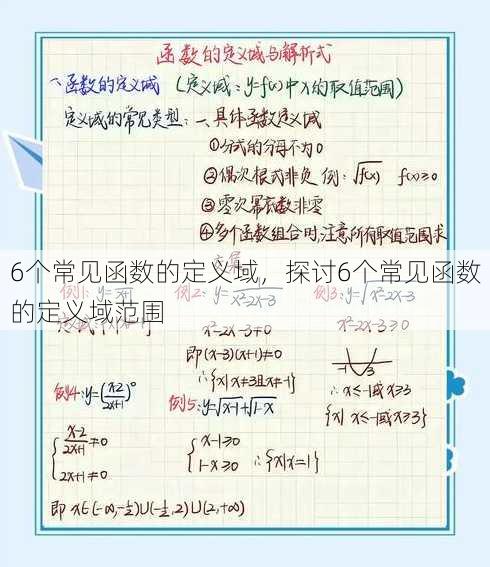 函数的定义域与解析式
一、函数的定义域 (定义域: y=f(x)中x的取值范围)
定义域的常见类型: 一、具体函数定义域
①分式的分母不为0
②偶次根式非负 例: √f(x) f(x)≥0
③零次幂底数非零
④多个函数组合时,注意所有取值范围求
6个常见函数的定义域，探讨6个常见函数
的定义域范围
例1: 例2: y= 例3: y=√x²-2x-3
x²-2x-3≠0 x²-2x-3≥0
即(x-3)(x+1)≠0
∴{x|x≠3且x≠-1} -1 3
∴x≤-1或x≥3
{x|x≤-1或x≥3}
例4: y=(x-2/2x+1)⁰ 例5: y=√x-1+√1-x
{x-2/2x+1≠0 {x-1≥0
2x+1≠0 1-x≥0 ∴{x|x=1}
即x∈(-∞,-1/2)∪(-1/2,2)∪(2,+∞)